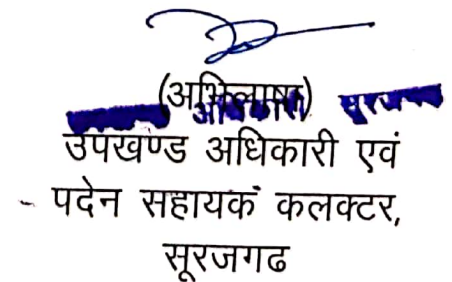 (अभिलाषा)
सूरजगढ
उपखण्ड अधिकारी एवं
पदेन सहायक कलक्टर,
सूरजगढ